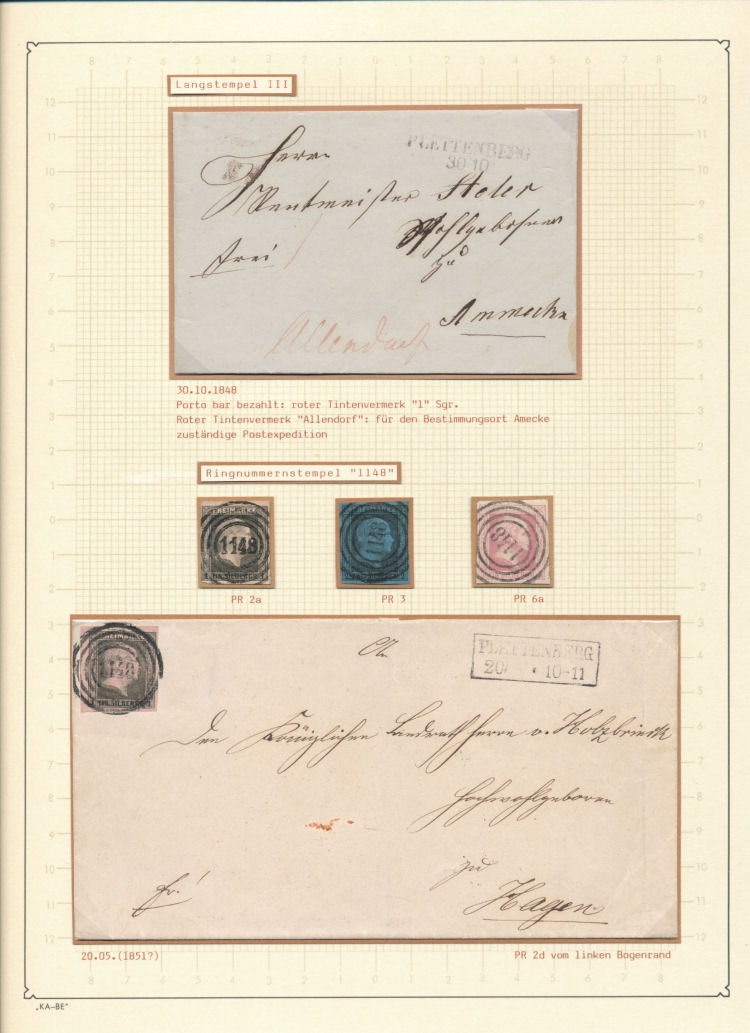 Langstempel III
PLETTENBERG
30 10
Herrn
Rentmeister Steler
Wohlgebohren
frei
zu
Ammecke
Allendorf
30.10.1848
Porto bar bezahlt: roter Tintenvermerk "1" Sgr.
Roter Tintenvermerk "Allendorf": für den Bestimmungsort Amecke
zuständige Postexpedition
Ringnummernstempel "1148"
FREIMARKE
1148
1 SILBERGR 1
FREIMARKE
1148
1148
PR 2a
PR 3
PR 6a
FREIMARKE
1148
1 SILBERGR 1
PLETTENBERG
20 10-11
Den Königlichen Landrath Herrn v. Holzbrinck
Hochwohlgeboren
zu
fr!
Hagen
20.05.(1851?)
PR 2d vom linken Bogenrand
„KA–BE"